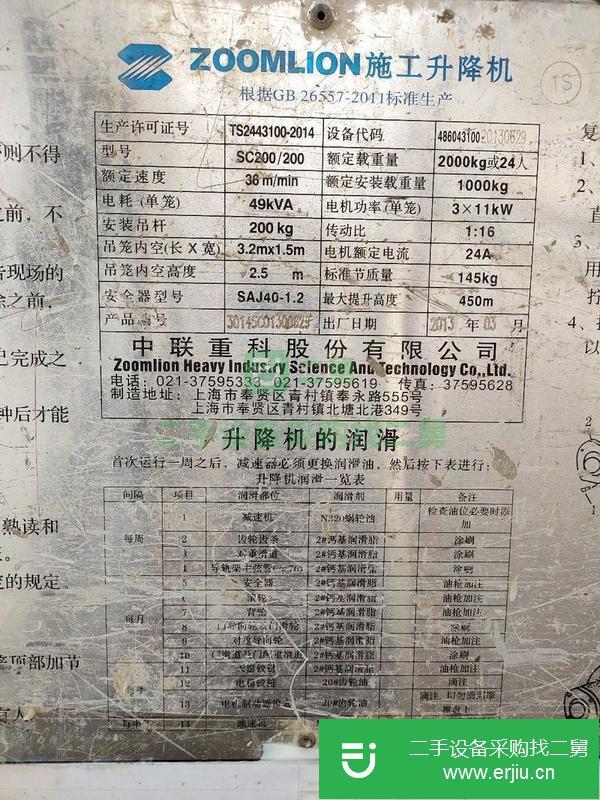 ZOOMLION施工升降机
根据GB 26557-2011标准生产
TS
生产许可证号 TS2443100-2014 设备代码 48604310020130629
型号 SC200/200 额定载重量 2000kg或24人
额定速度 36 m/min 额定安装载重量 1000kg
电耗(单笼) 49kVA 电机功率(单笼) 3×11kW
安装吊杆 200 kg 传动比 1:16
吊笼内空(长X宽) 3.2m×1.5m 电机额定电流 24A
吊笼内空高度 2.5 m 标准节质量 145kg
安全器型号 SAJ40-1.2 最大提升高度 450m
产品编号 出厂日期 2013 年 03 月
中联重科股份有限公司
Zoomlion Heavy Industry Science And Technology Co.,Ltd.
电话：021-37595333 021-37595619 传真：37595628
制造地址：上海市奉贤区青村镇奉永路555号
上海市奉贤区青村镇北塘北港349号
升降机的润滑
首次运行一周之后，减速器必须更换润滑油，然后按下表进行：
升降机润滑一览表
间隔 项目 润滑部位 润滑剂 用量 备注
每周 1 减速机 N320蜗轮油 检查油位必要时添加
2 齿轮齿条 2#钙基润滑脂 涂刷
3 对重滑道 2#钙基润滑脂 涂刷
4 2#钙基润滑脂 涂刷
每月 5 安全器 2#钙基润滑脂 油枪加注
6 滚轮 2#钙基润滑脂 油枪加注
7 背轮 2#钙基润滑脂 油枪加注
8 2#钙基润滑脂 涂刷
9 对重导向轮 2#钙基润滑脂 油枪加注
10 2#钙基润滑脂 涂刷
11 天窗铰链 2#钙基润滑脂 油枪加注
每季 12 电箱铰链 20#齿轮油 滴注
13 20#齿轮油 滴注，切勿滴到摩擦盘上
每半年 14 减速机
则不得
之前，不
告现场的
除之前，
已完成之
钟后才能
熟读和
定的规定、
笼顶部加节
复
1、
2、
直
3、
用
拧
4、
以
二手设备采购找二舅
www.erjiu.cn